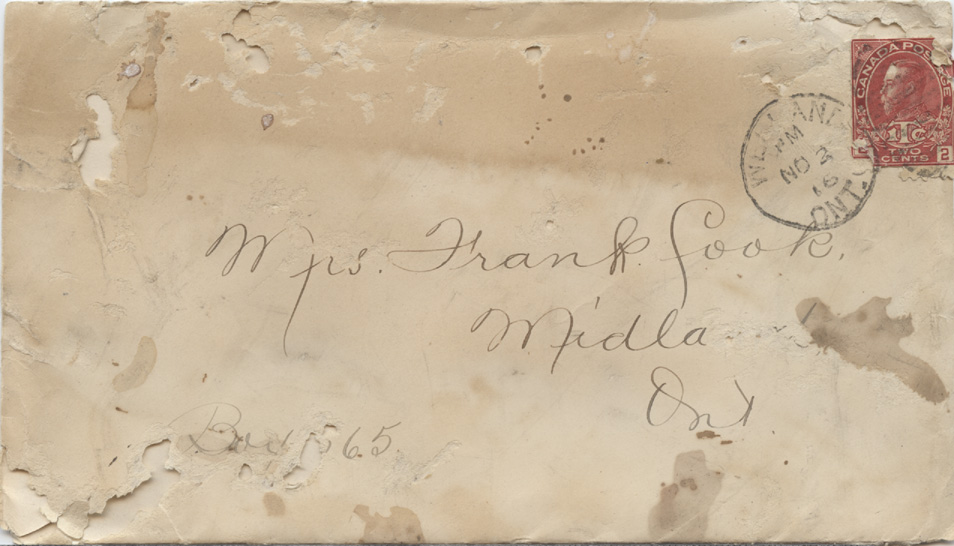 CANADA POSTAGE
1TC
2 TWO 2
CENTS
WELLAND
PM
NO 2
16
ONT.
Mrs. Frank Cook,
Midland
Ont
Box 565.